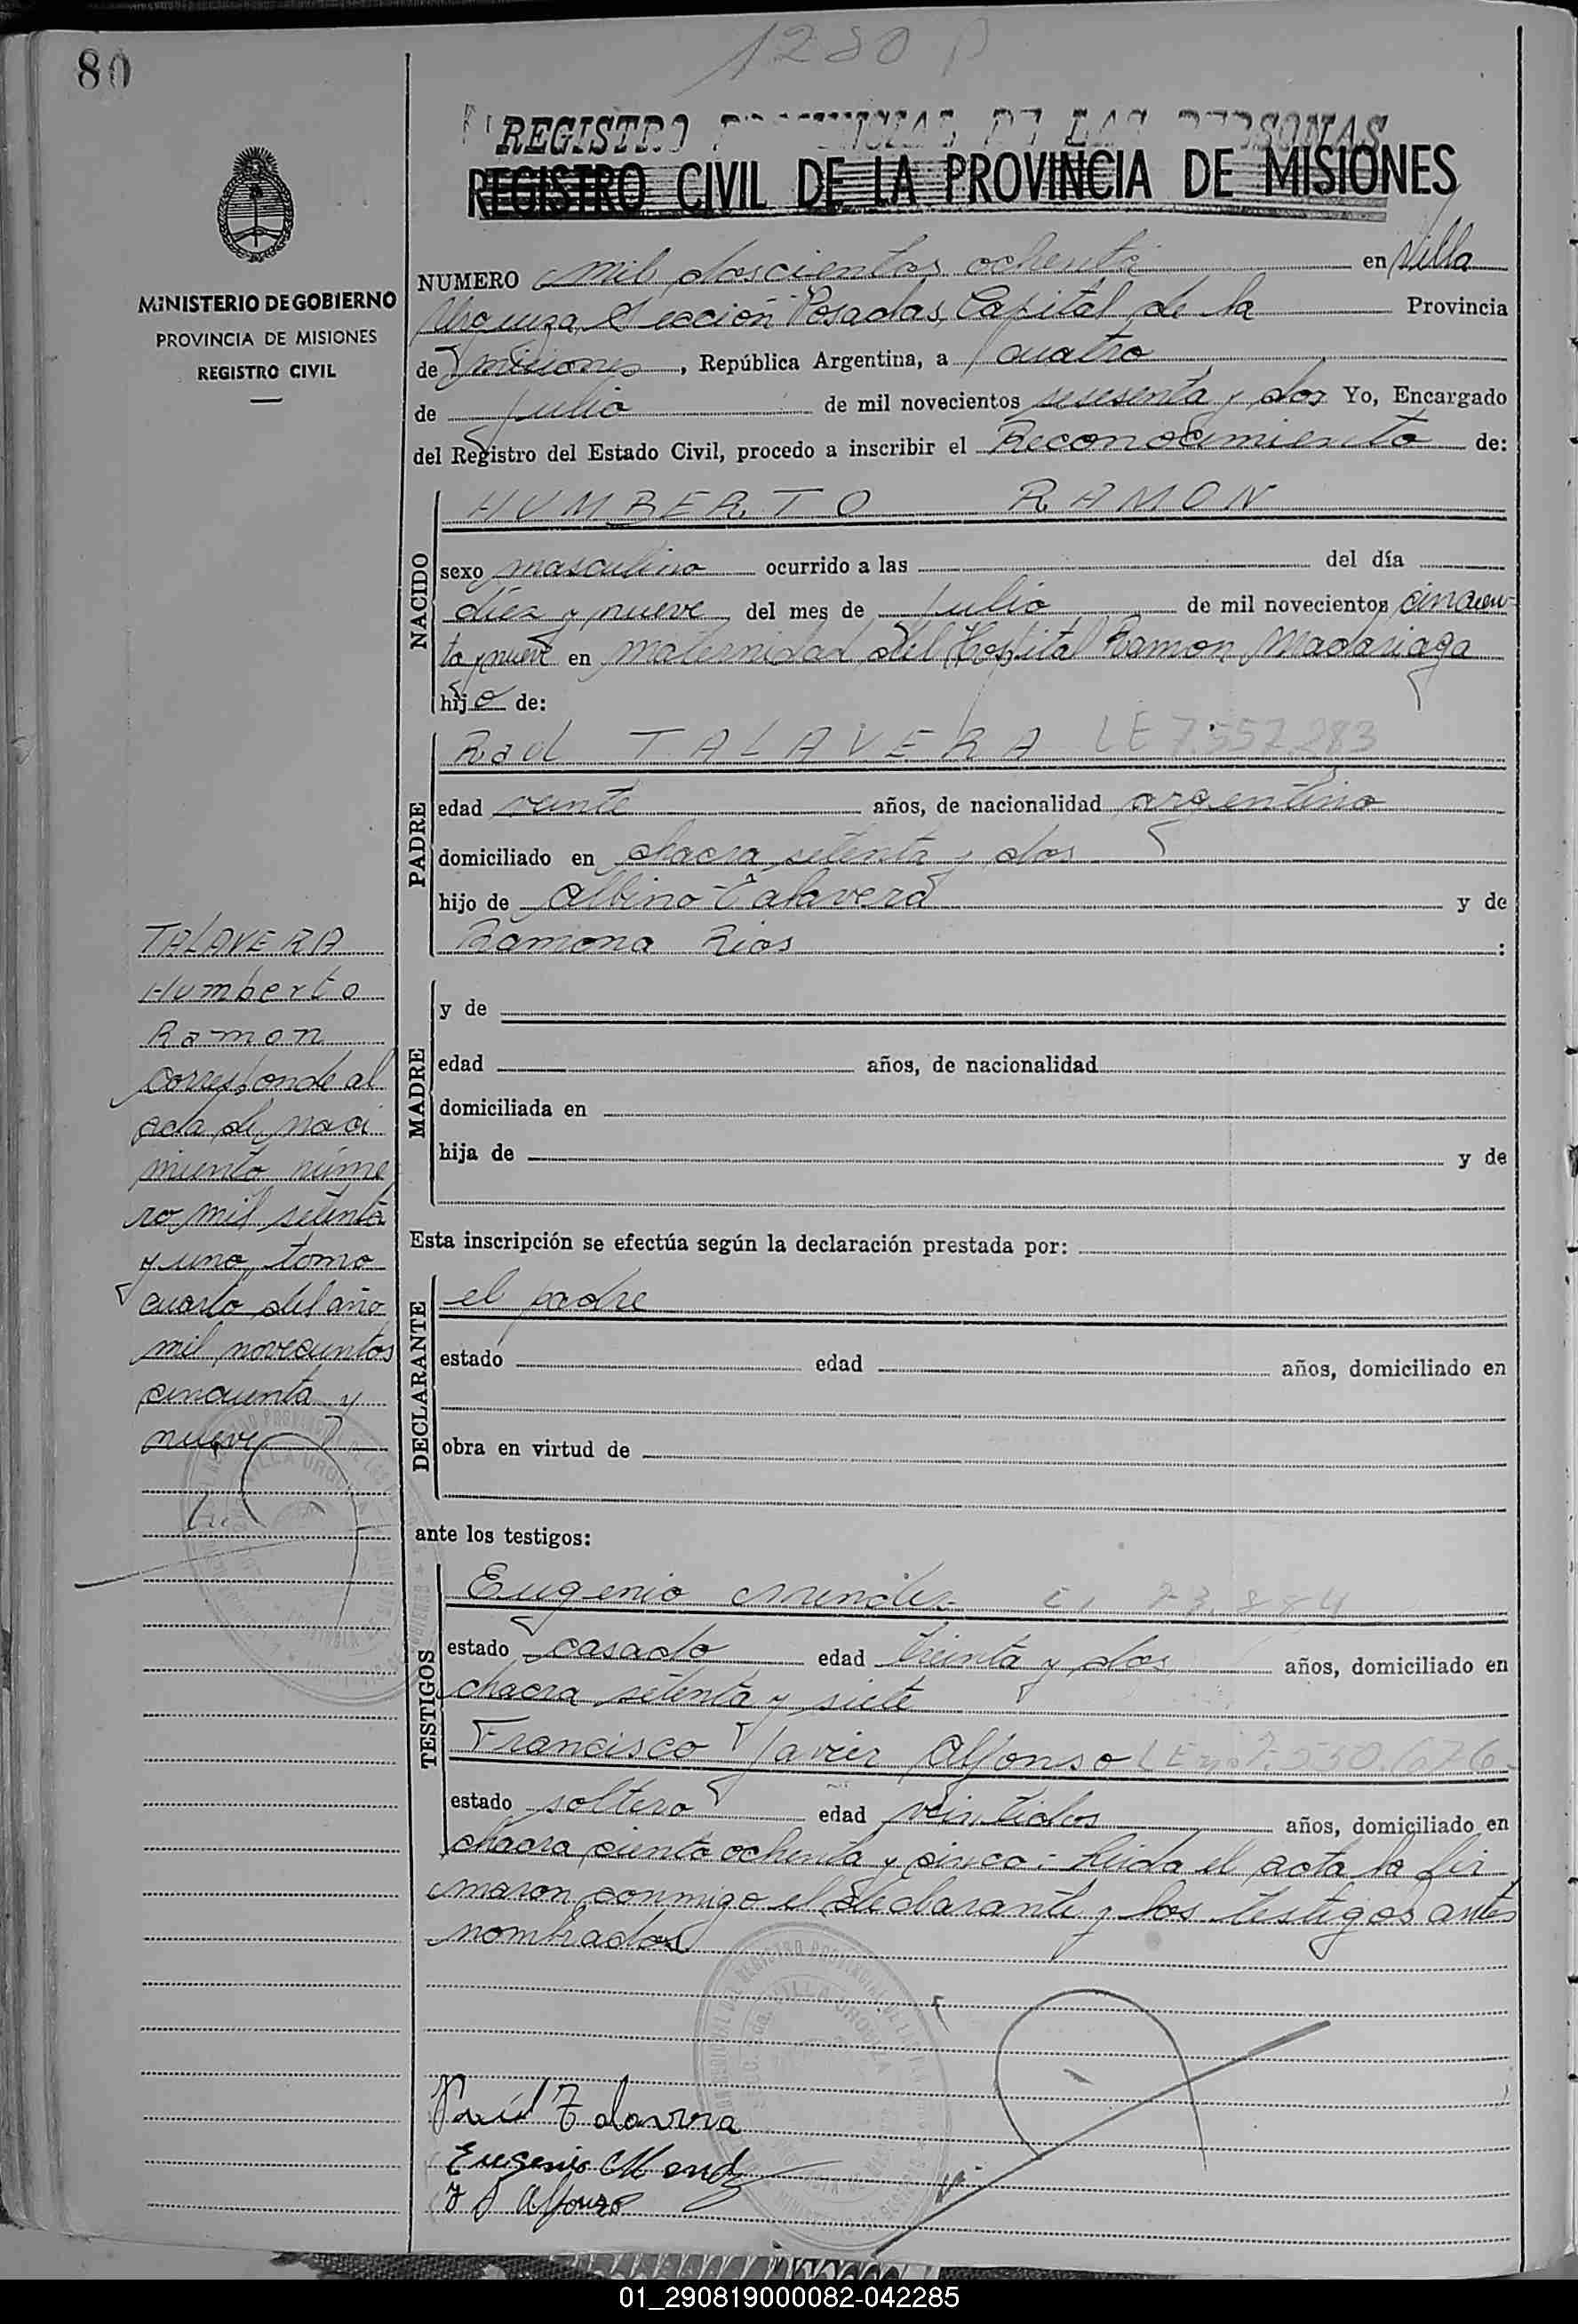 80
1280 P
REGISTRO PROVINCIAL DE LAS PERSONAS
REGISTRO CIVIL DE LA PROVINCIA DE MISIONES
MINISTERIO DE GOBIERNO
PROVINCIA DE MISIONES
REGISTRO CIVIL
NUMERO mil doscientos ochenta en Villa
Urquiza, Sección Posadas, Capital de la Provincia
de misiones, República Argentina, a cuatro
de julio de mil novecientos sesesenta y dos Yo, Encargado
del Registro del Estado Civil, procedo a inscribir el Reconocimiento de:
NACIDO
HUMBERTO RAMON
sexo masculino ocurrido a las del día
diez y nueve del mes de julio de mil novecientos cincuen-
ta y nueve en maternidad del Hospital Ramon Madariaga
hijo de:
PADRE
Raul TALAVERA LE 7.557.283
edad veinte años, de nacionalidad argentino
domiciliado en chacra setenta y dos
hijo de Albino Talavera y de
Ramona Rios :
MADRE
y de
edad años, de nacionalidad
domiciliada en
hija de y de
Esta inscripción se efectúa según la declaración prestada por:
DECLARANTE
el padre
estado edad años, domiciliado en
obra en virtud de
ante los testigos:
TESTIGOS
Eugenio Mendez C.I. 73.884
estado casado edad treinta y dos años, domiciliado en
chacra setenta y siete
Francisco Javier Alfonso LE no 7.550.676-
estado soltero edad veintidos años, domiciliado en
chacra ciento ochenta y cinco.- Leida el acta la fir
maron conmigo el declarante y los testigos antes
nombrados
Raúl Talavera
Eugenio Mendez
F J Alfonso
TALAVERA
Humberto
Ramon
corresponde al
acta de naci
miento núme
ro mil setenta
y uno, tomo
cuarto del año
mil novecientos
cincuenta y
nueve
VILLA URQUIZA
VILLA URQUIZA
01_290819000082-042285